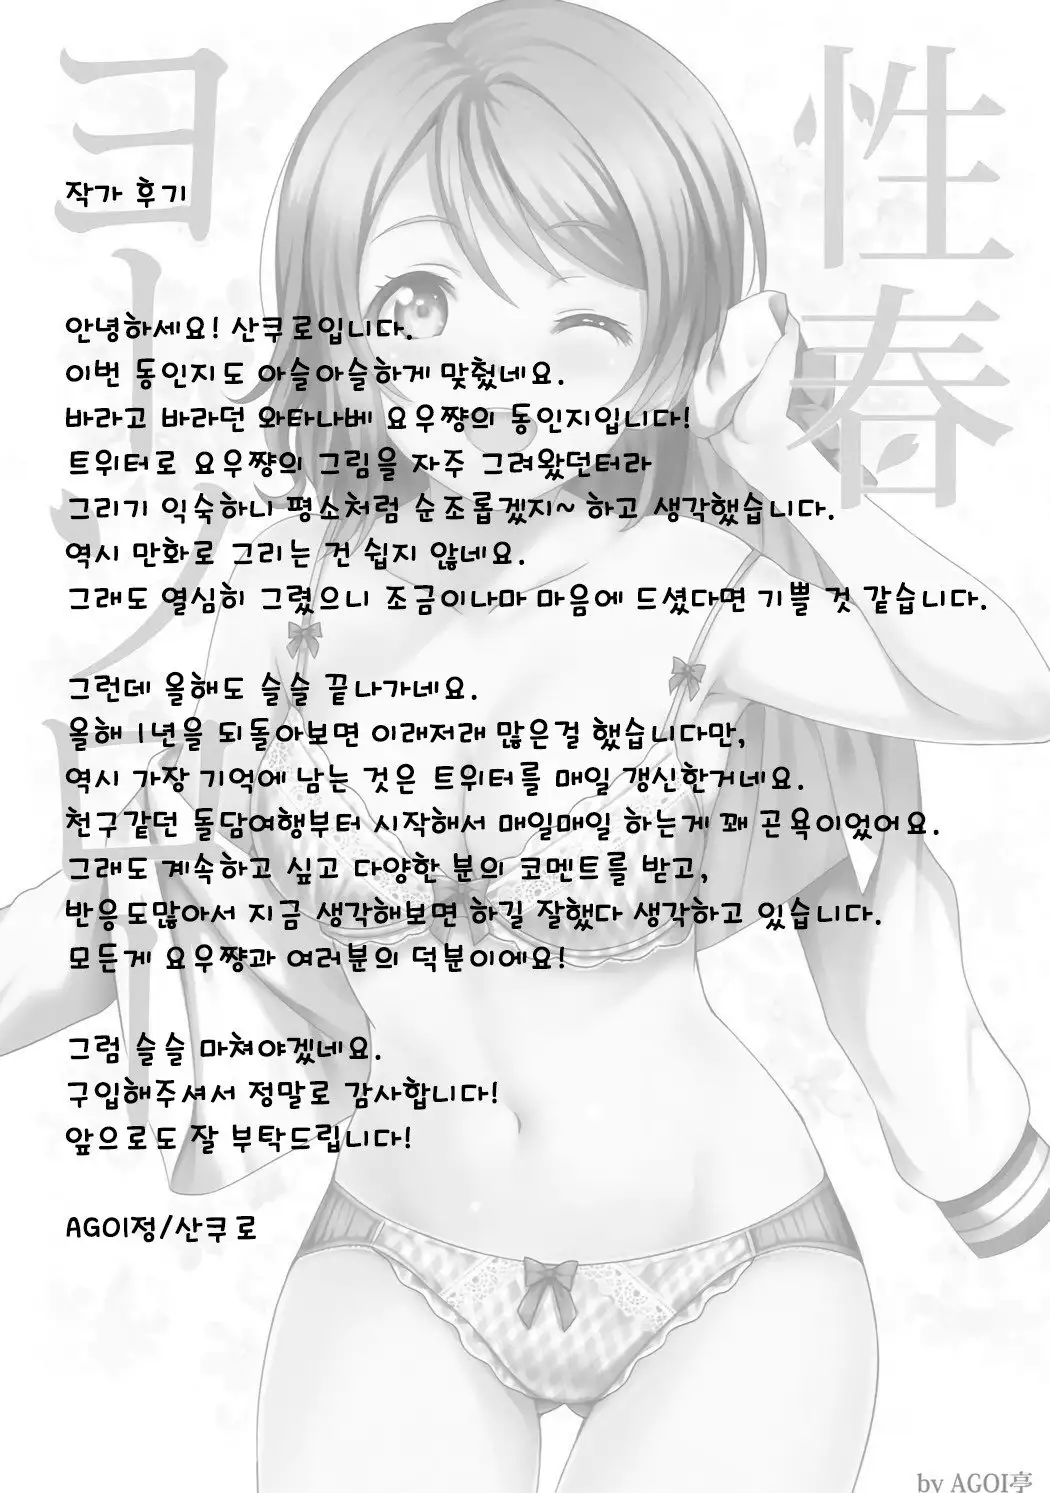 性春
ヨーソロー
작가 후기
안녕하세요! 산쿠로입니다.
이번 동인지도 아슬아슬하게 맞췄네요.
바라고 바라던 와타나베 요우쨩의 동인지입니다!
트위터로 요우쨩의 그림을 자주 그려왔던터라
그리기 익숙하니 평소처럼 순조롭겠지~ 하고 생각했습니다.
역시 만화로 그리는 건 쉽지 않네요.
그래도 열심히 그렸으니 조금이나마 마음에 드셨다면 기쁠 것 같습니다.
그런데 올해도 슬슬 끝나가네요.
올해 1년을 되돌아보면 이래저래 많은걸 했습니다만,
역시 가장 기억에 남는 것은 트위터를 매일 갱신한거네요.
천구같던 돌담여행부터 시작해서 매일매일 하는게 꽤 곤욕이었어요.
그래도 계속하고 싶고 다양한 분의 코멘트를 받고,
반응도많아서 지금 생각해보면 하길 잘했다 생각하고 있습니다.
모든게 요우쨩과 여러분의 덕분이에요!
그럼 슬슬 마쳐야겠네요.
구입해주셔서 정말로 감사합니다!
앞으로도 잘 부탁드립니다!
AGOI정/산쿠로
by AGOI亭